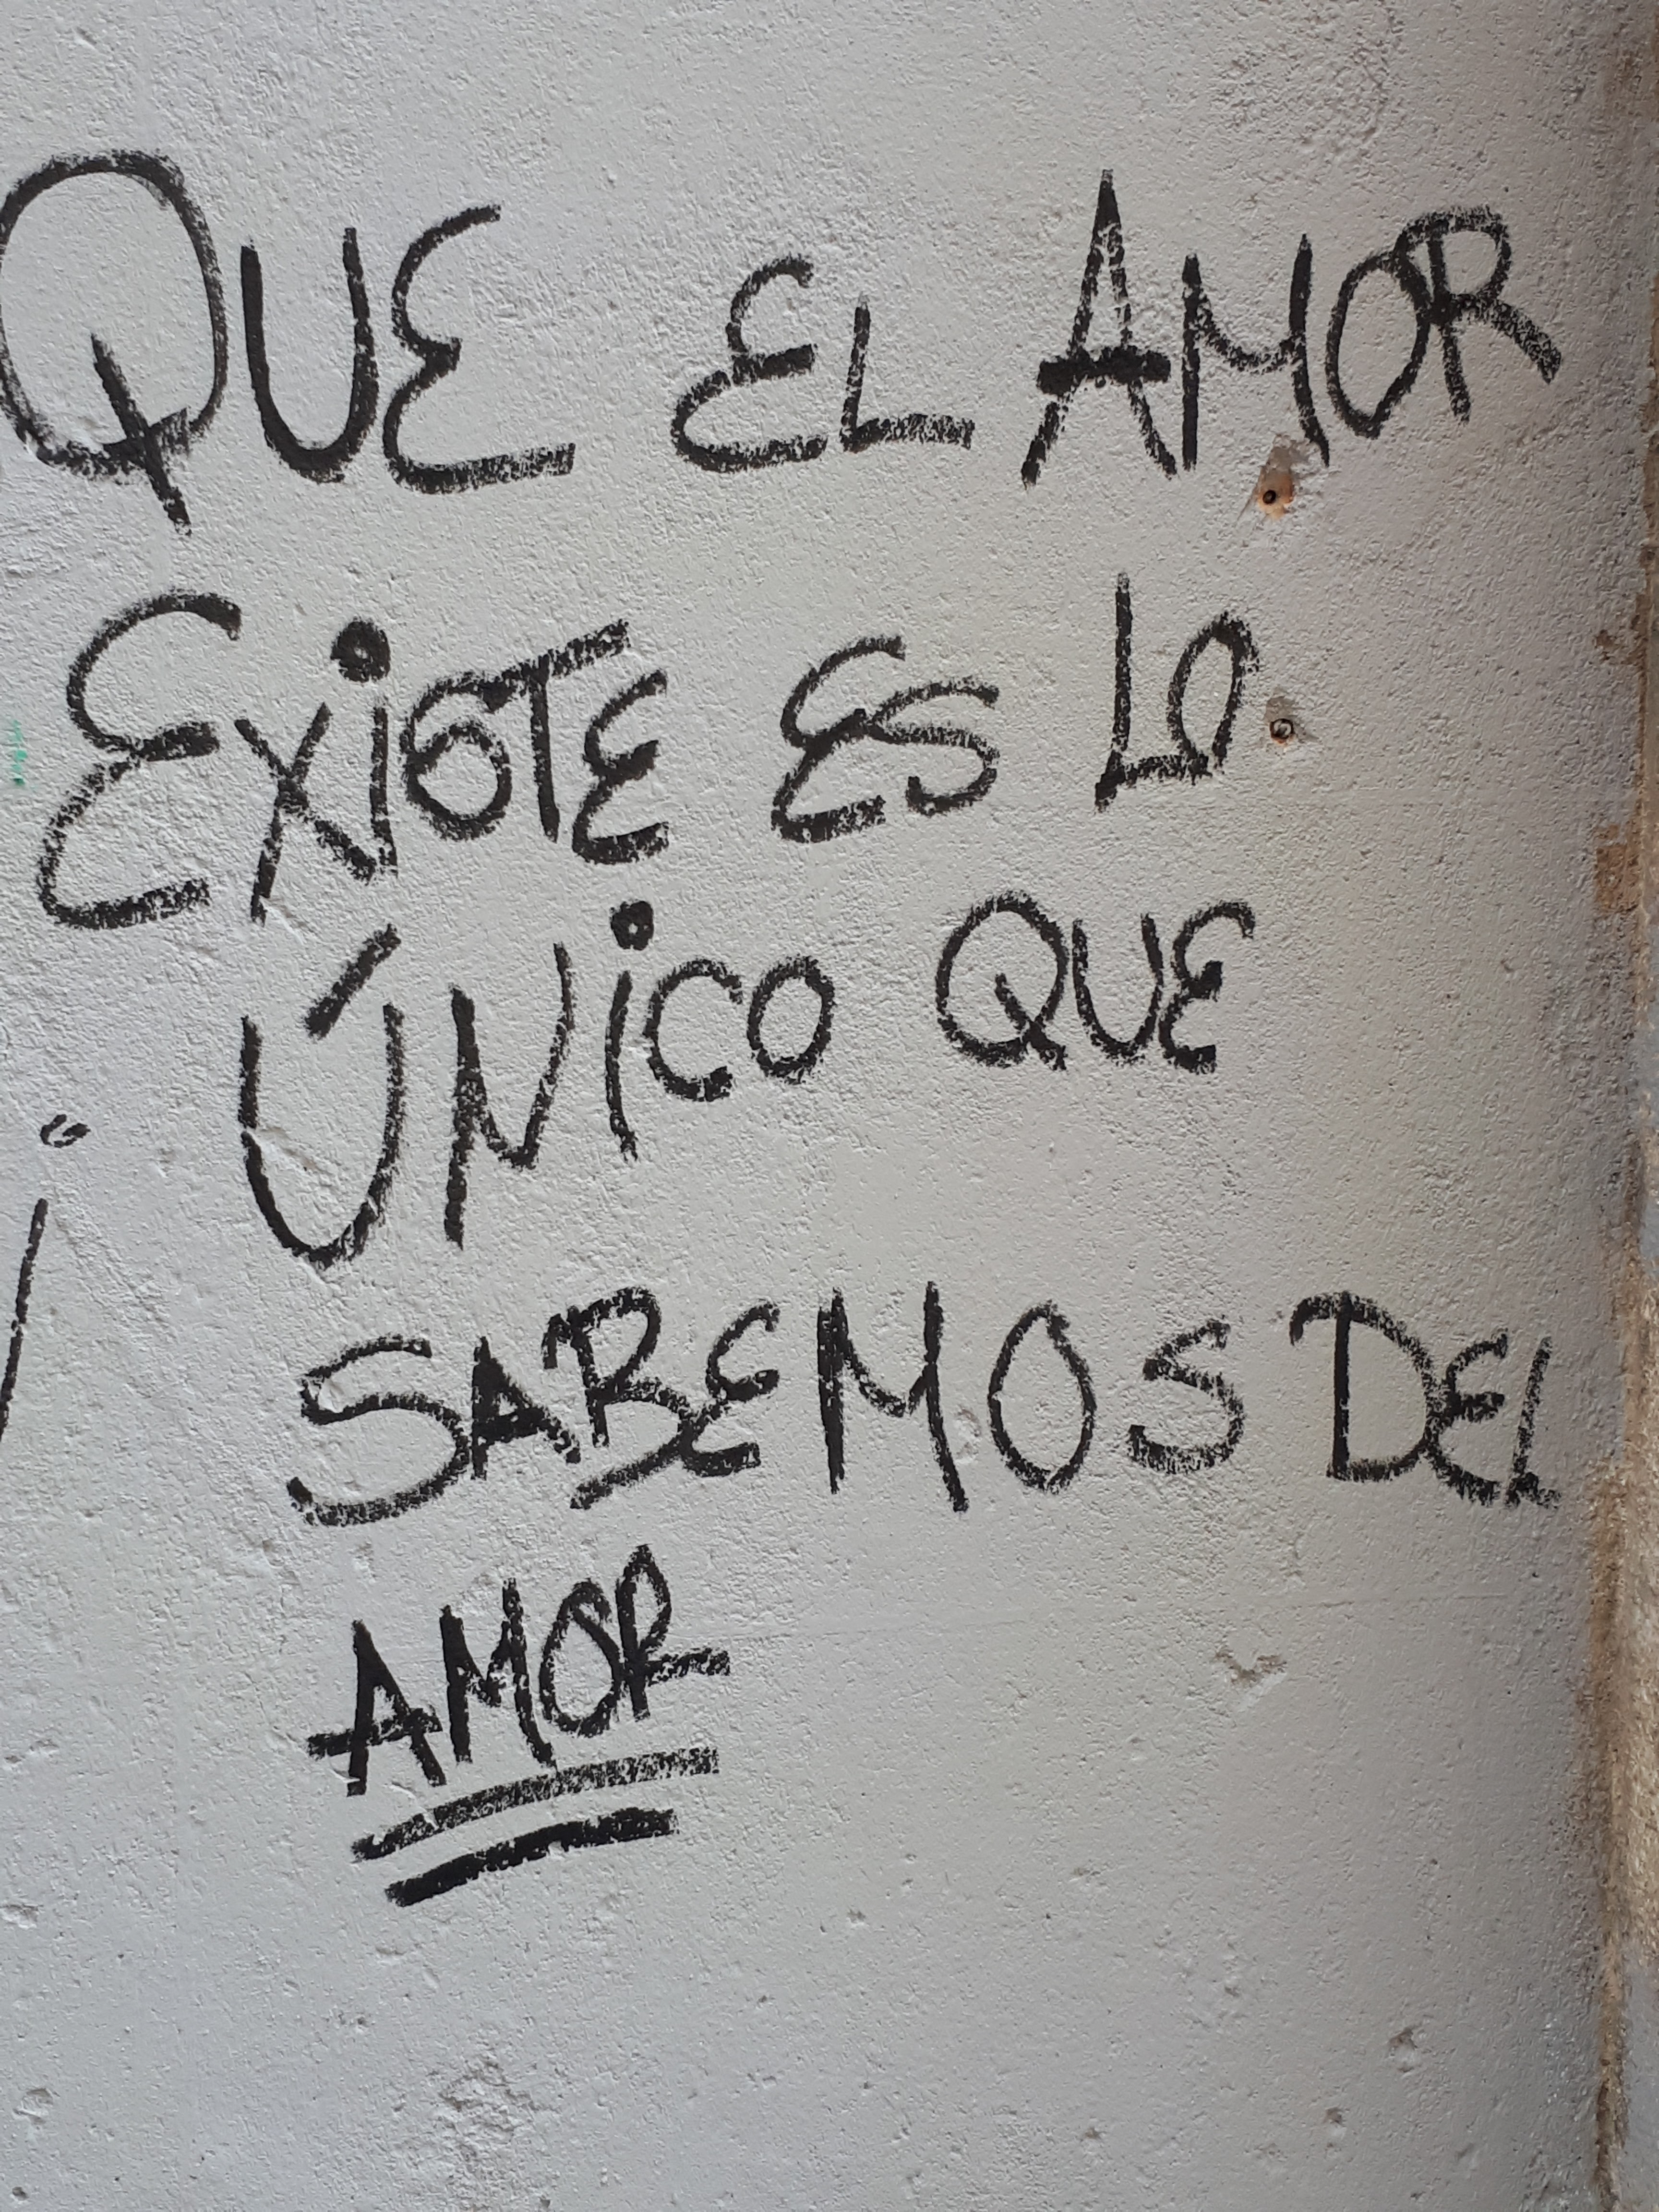 QUE EL AMOR
EXiSTE ES LO
ÚNiCO QUE
SABEMOS DEL
AMOR